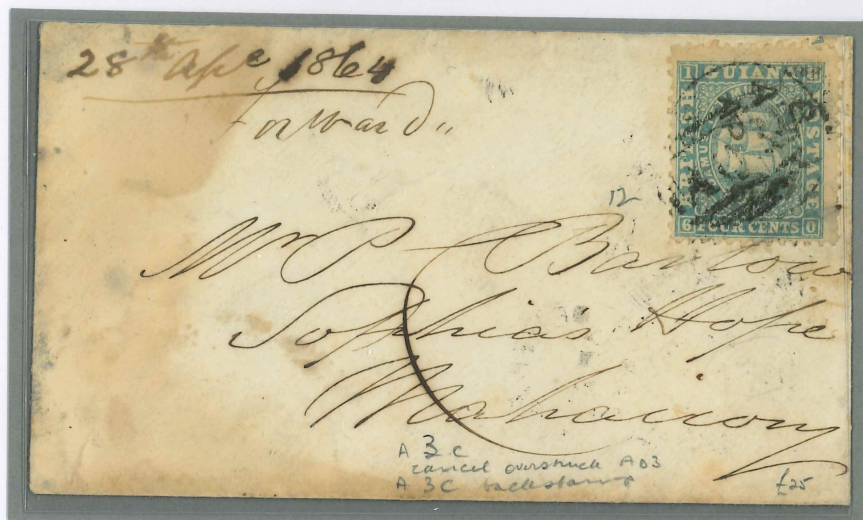 28th Ape 1864
Forward,,
1 GUIANA
BRITISH
POSTAGE
6 FOUR CENTS 0
12
Mr P Barlow
Sophias Hope
Mahaicony
A 3 C
cancel overstruck A03
A 3C backstamp
£25